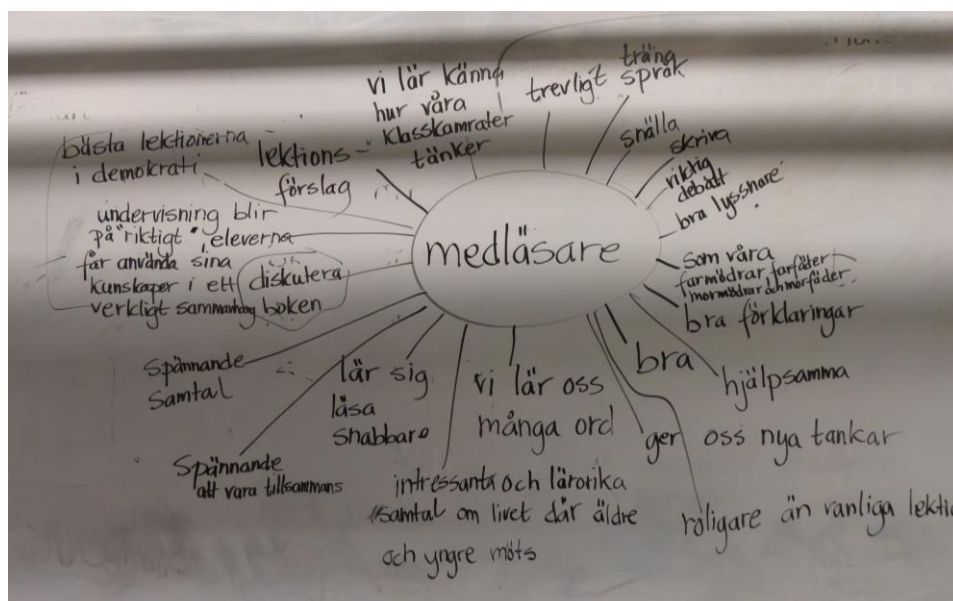 medläsare
vi lär känna
hur våra
klasskamrater
tänker
trevligt
träna
språk
snälla
skriva
riktig
debatt
bra lyssnare
som våra
farmödrar, farfäder
mormödrar och morfäder
bra förklaringar
hjälpsamma
bra
ger oss nya tankar
roligare än vanliga lektio
vi lär oss
många ord
intressanta och lärorika
samtal om livet där äldre
och yngre möts
lär sig
läsa
snabbare
Spännande
att vara tillsammans
Spännande
samtal
diskutera
boken
undervisning blir
på "riktigt" eleverna
får använda sina
kunskaper i ett
verkligt sammanhang
bästa lektionerna
i demokrati
lektions-
förslag